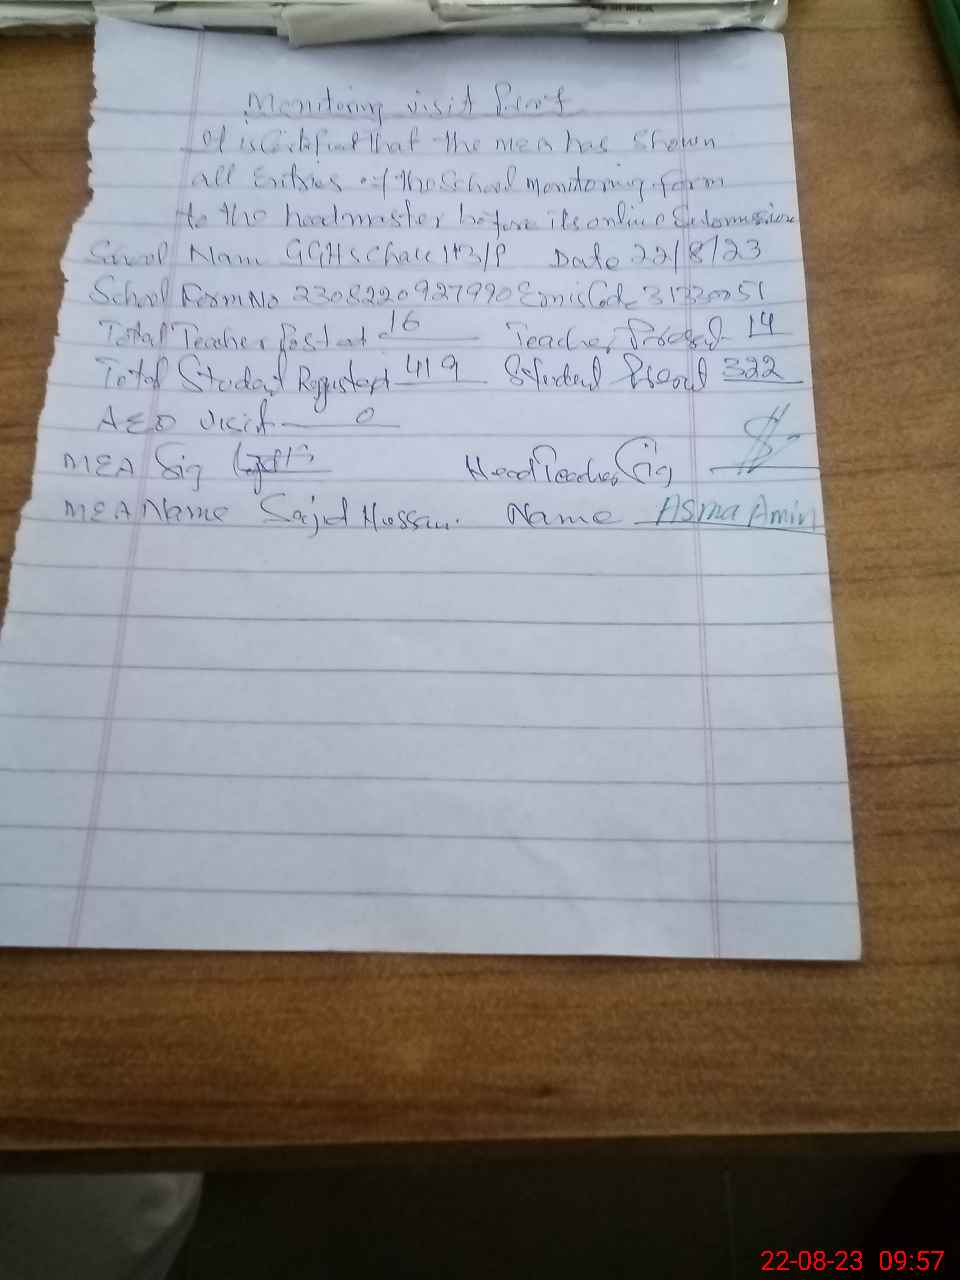 Monitoring visit Proof
It is Certified that the MEA has Shown
all Entries of the School monitoring form
to the headmaster before its online Submission
School Name GGHS Chack 113/P Date 22/8/23
School Form No 2308220927990 Emis Code
Total Teacher Posted 16 Teacher Present 14
Total Student Registered 419 Student Present 322
AEO Visit 0
MEA Sig Head Teacher Sig
MEA Name Sajid Hussain Name Asma Amin
22-08-23 09:57